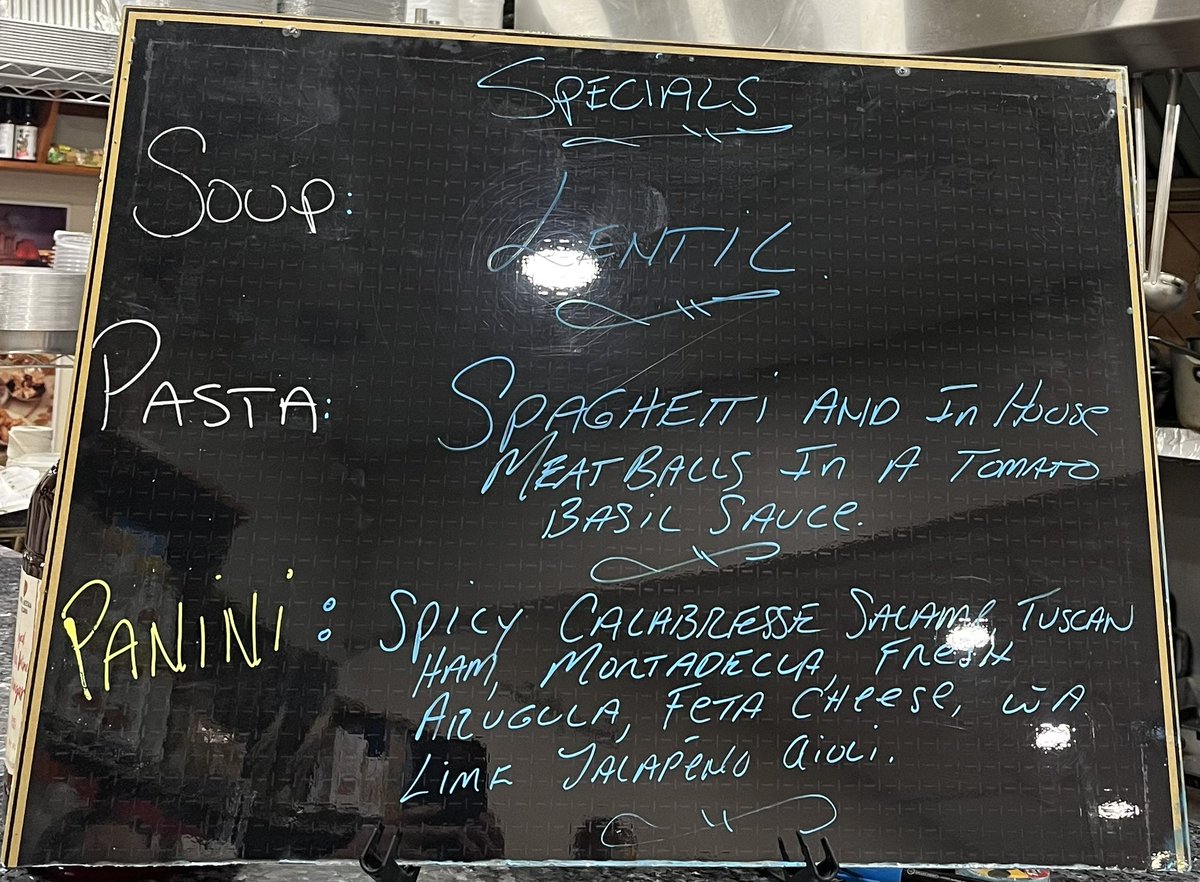 SPECIALS
SOUP:
LENTIL.
PASTA:
SPAGHETTI AND In House
MEATBALLS In A TOMATO
BASIL SAUCE.
PANINI:
SPICY CALABRESSE SALAMAE TUSCAN
HAM, MORTADELLA, FRESH
ARUGULA, FETA CHEESE, w/A
LIME JALAPEÑO AIOLI.